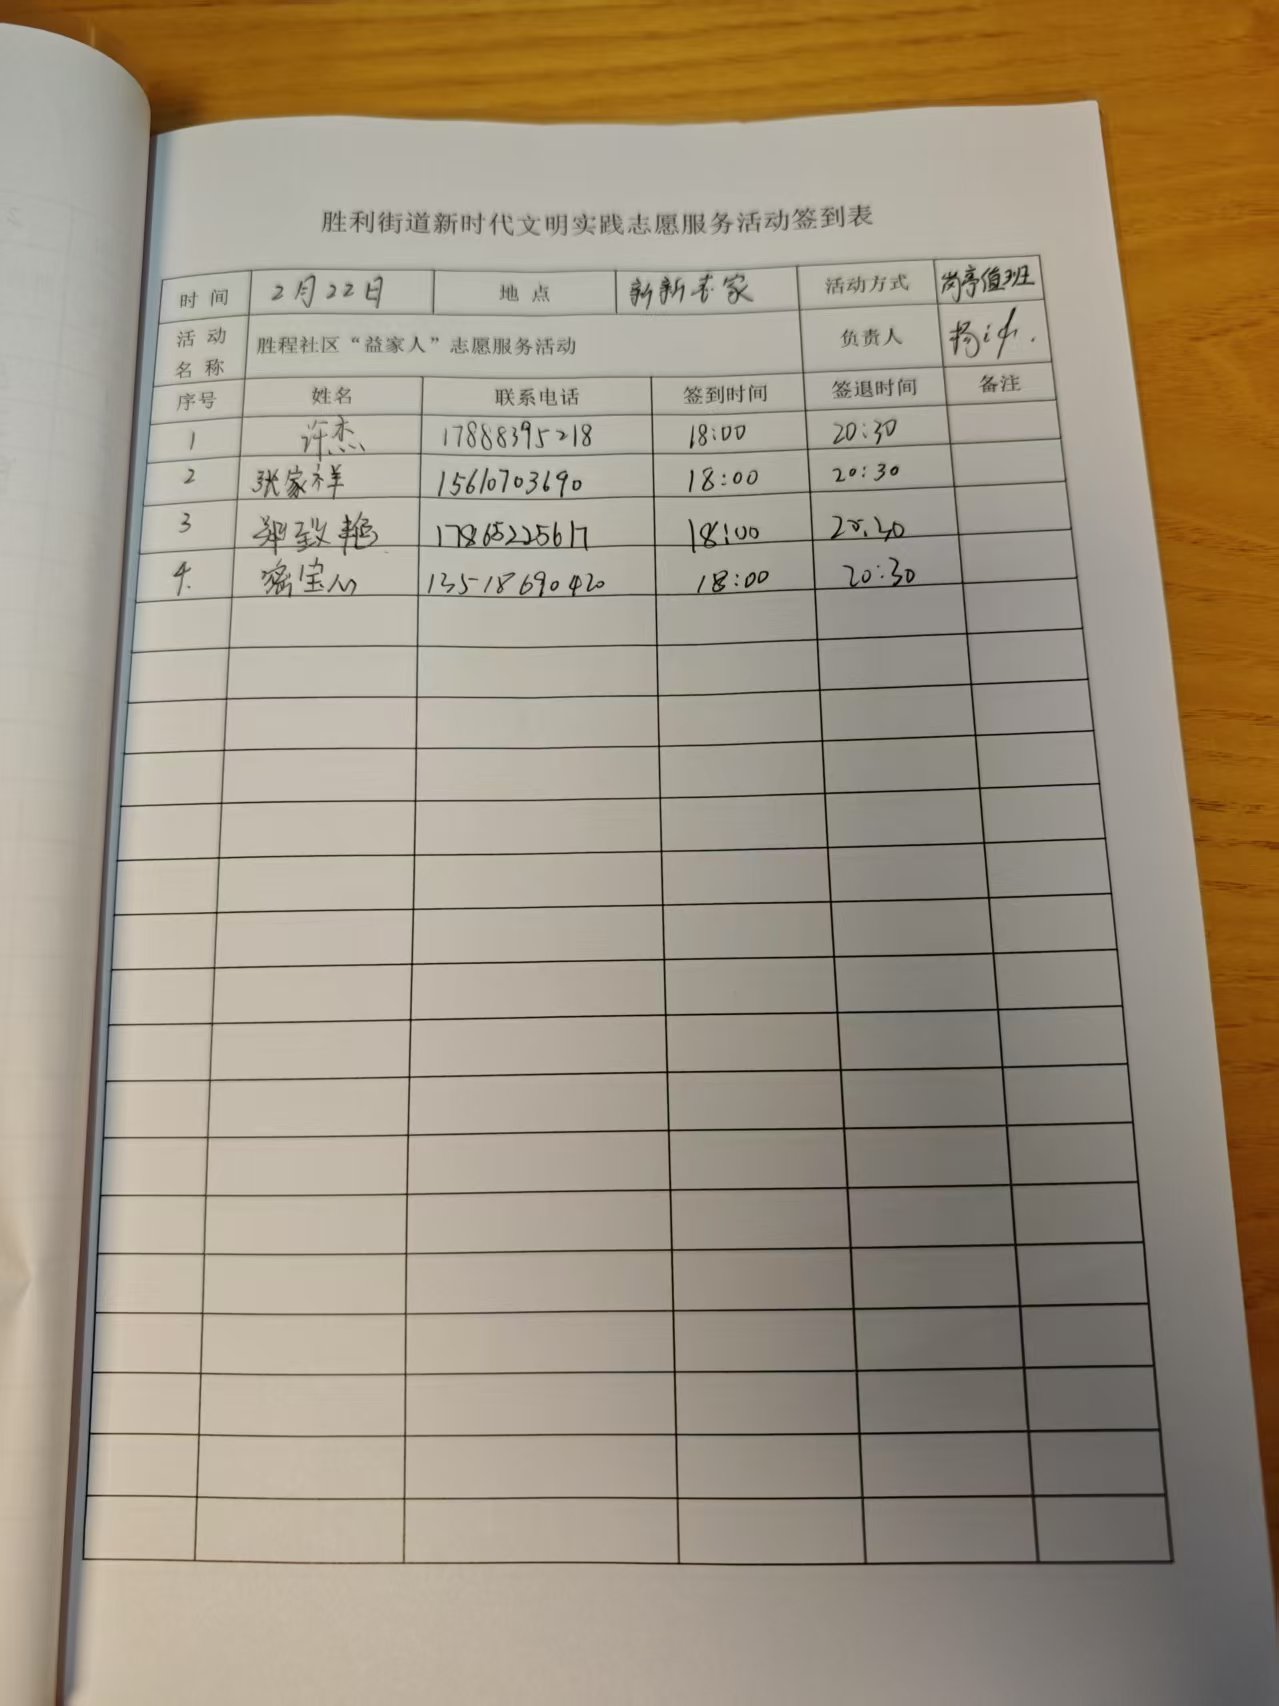 胜利街道新时代文明实践志愿服务活动签到表
时间 2月22日 地点 新新 家 活动方式 岗亭值班
活动名称 胜程社区“益家人”志愿服务活动 负责人 杨
序号 姓名 联系电话 签到时间 签退时间 备注
1 许杰 17888395218 18:00 20:30
2 张家祥 15610703690 18:00 20:30
3 郑致艳 17865225617 18:00 20:30
4. 宝 13518690420 18:00 20:30